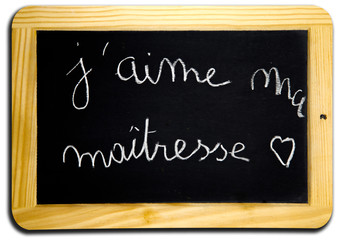 j'aime ma
maîtresse ♡